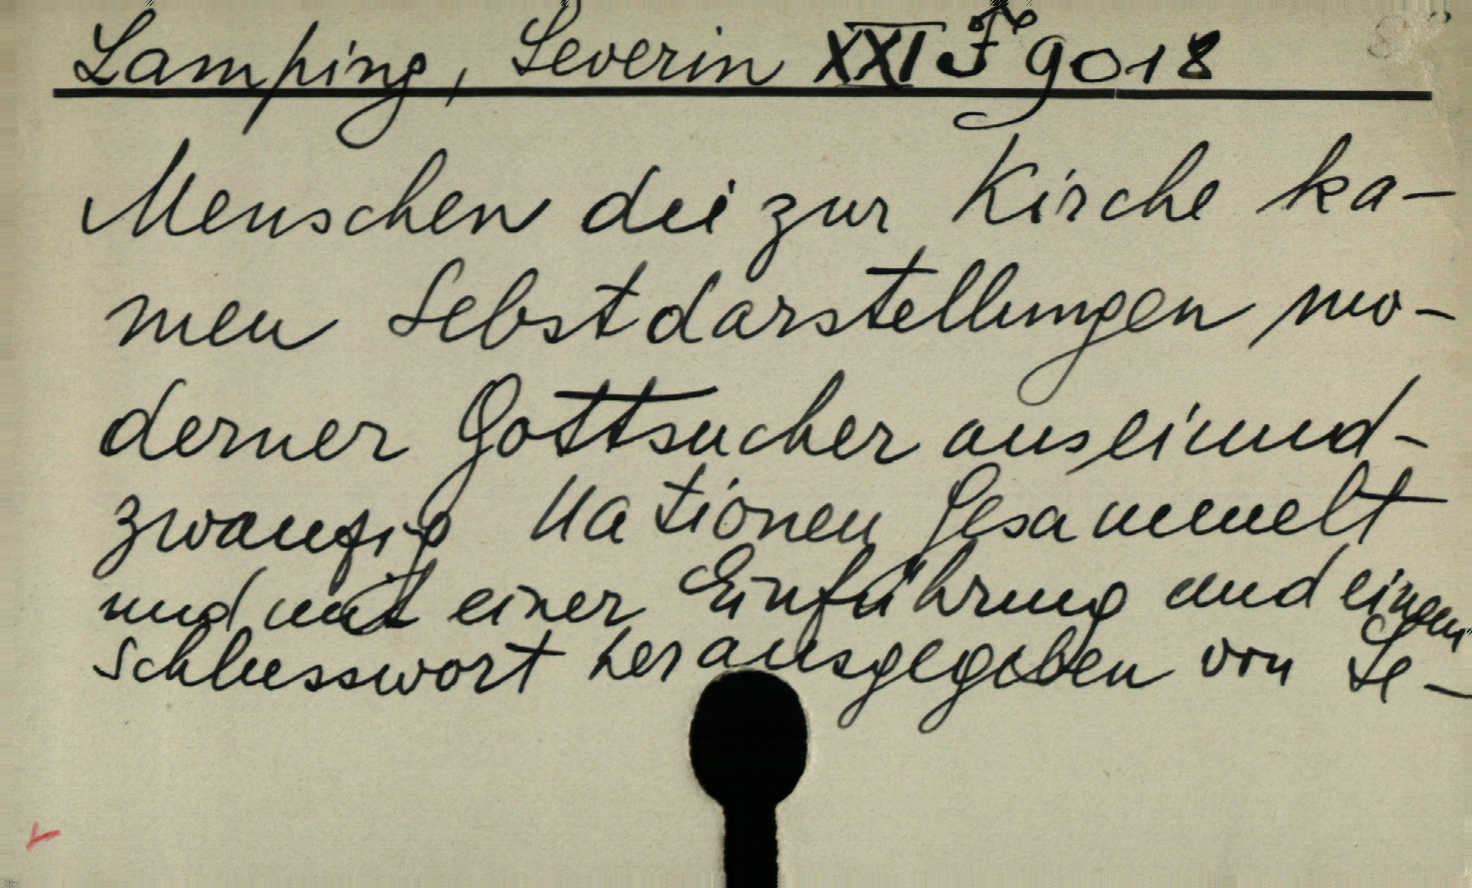 Lamping, Severin XXI Je 9018
Menschen die zur Kirche ka-
men Selbstdarstellungen mo-
derner Gottsucher aus einund-
zwanzig Nationen Gesammelt
und mit einer Einführung und einem
Schlusswort herausgegeben von Se-